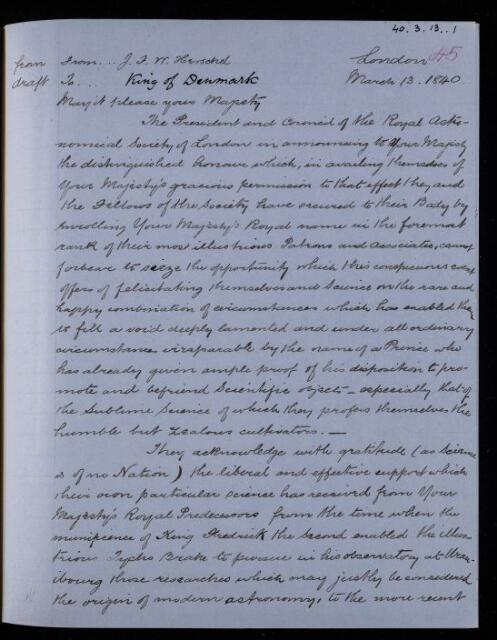 40.3.13..1
from From... J. F. W. Herschel London 45
draft To.... King of Denmark March 13. 1840
May it please your Majesty
The President and Council of the Royal Astro-
nomical Society of London in announcing to Your Majesty
the distinguished honour which, in availing themselves of
Your Majesty's gracious permission to that effect they and
the Fellows of the Society have secured to their Body by
enrolling Your Majesty's Royal name in the foremost
rank of their most illustrious Patrons and Associates, cannot
forbear to seize the opportunity which this conspicuous event
offers of felicitating themselves and Science on the rare and
happy combination of circumstances which has enabled them
to fill a void deeply lamented and under all ordinary
circumstance irreparable by the name of a Prince who
has already given ample proof of his disposition to pro-
mote and befriend Scientific objects - especially that of
the Sublime Science of which they profess themselves the
humble but Zealous cultivators. —
They acknowledge with gratitude (as Science
is of no Nation) the liberal and effective support which
their own particular science has received from Your
Majesty's Royal Predecessors from the time when the
munificence of King Fredrick the Second enabled the illus-
trious Tycho Brahe to pursue in his observatory at Uran-
ibourg those researches which may justly be considered
the origin of modern astronomy, to the more recent